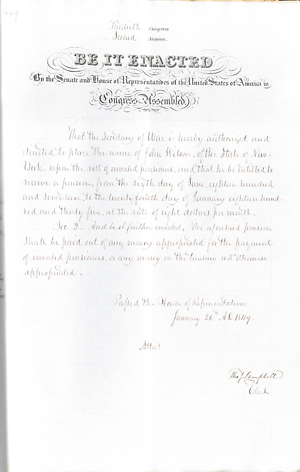 Thirtieth Congress
Second Session
BE IT ENACTED
By the Senate and House of Representatives of the United States of America in
Congress Assembled,
That the Secretary of War is hereby authorized and
directed to place the name of John Wilson, of the State of New-
York, upon the roll of invalid pensions, and that he be entitled to
receive a pension, from the sixth day of June eighteen hundred
and seventeen, to the twenty fourth day of January eighteen hund-
red and thirty five, at the rate of eight dollars per month.
Sec. 2. And be it further enacted, The aforesaid pension
shall be paid out of any money appropriated for the payment
of invalid pensioners, or any money in the treasury not otherwise
appropriated.
Passed the House of Representatives
January 20th A.D. 1849.
Attest
Tho. J. Campbell
Clerk